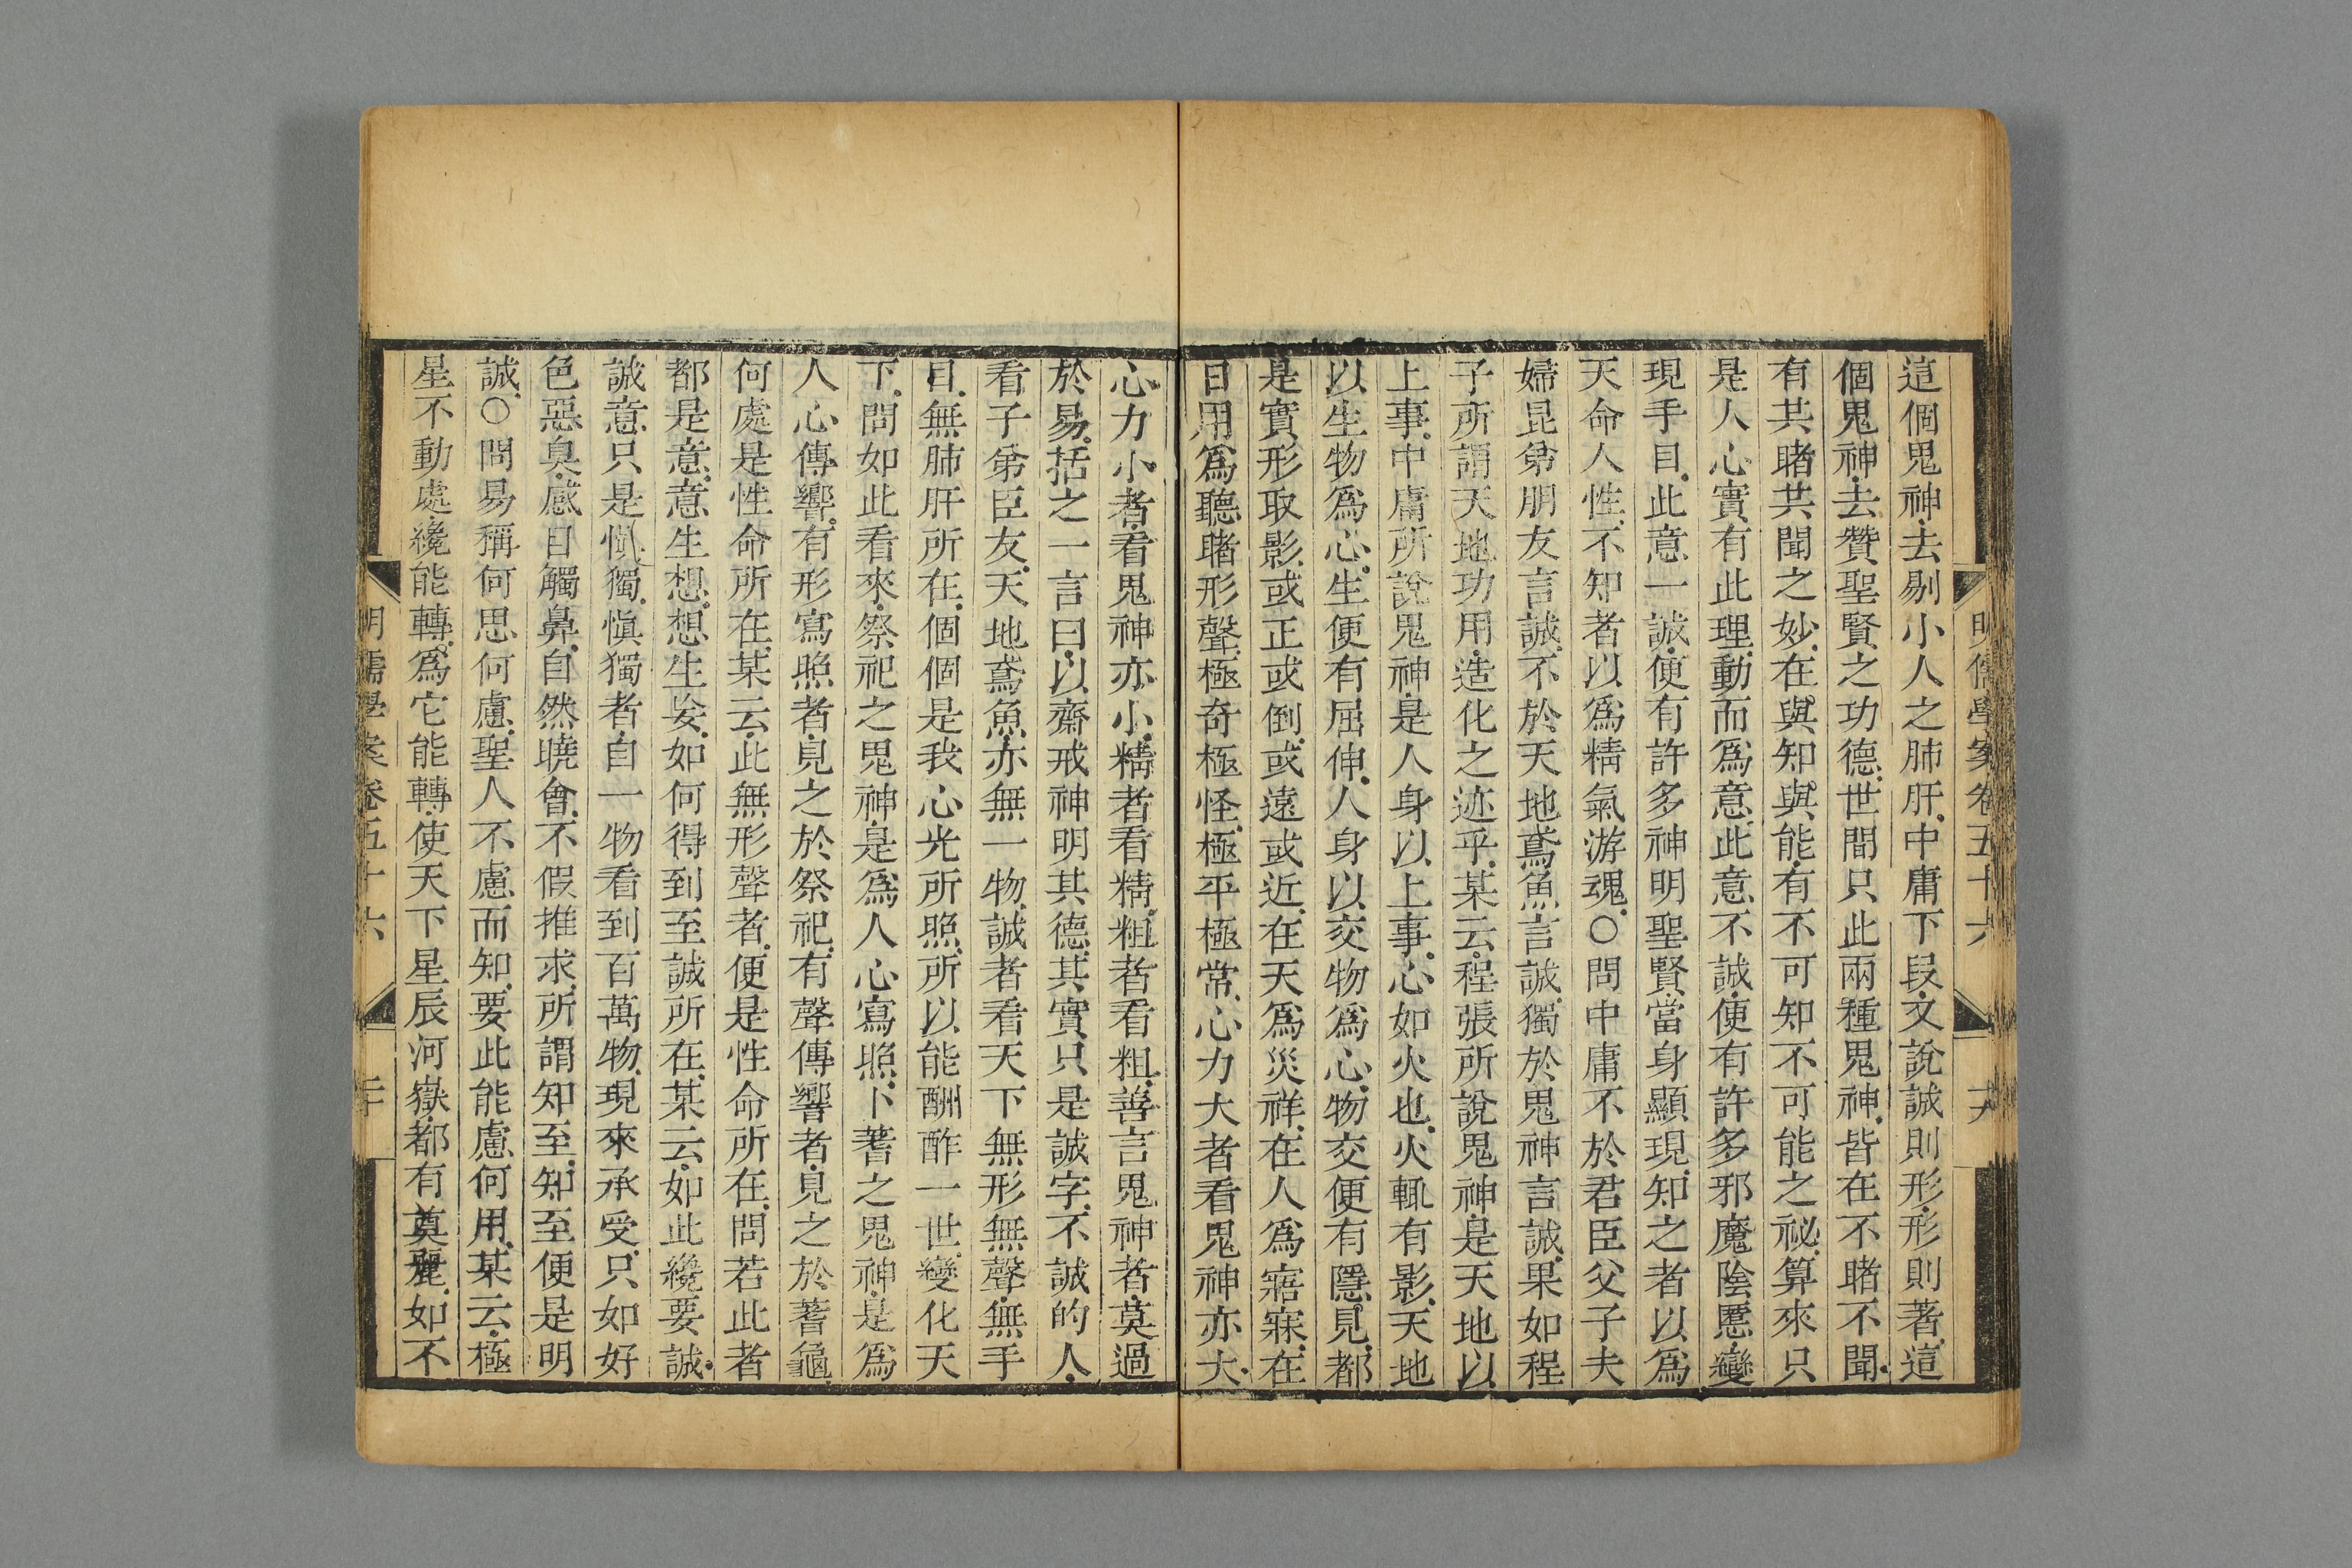 明儒學案卷五十六
這個鬼神去剔小人之肺肝中庸下段文說誠則形形則著這
個鬼神去贊聖賢之功德世間只此兩種鬼神皆在不睹不聞
有共睹共聞之妙在與知與能有不可知不可能之祕算來只
是人心實有此理動而爲意此意不誠便有許多邪魔陰慝變
現手目此意一誠便有許多神明聖賢當身顯現知之者以爲
天命人性不知者以爲精氣游魂○問中庸不於君臣父子夫
婦昆弟朋友言誠不於天地鳶魚言誠獨於鬼神言誠果如程
子所謂天地功用造化之迹乎某云程張所說鬼神是天地以
上事中庸所說鬼神是人身以上事心如火也火輒有影天地
以生物爲心生便有屈伸人身以交物爲心物交便有隱見都
是實形取影或正或倒或遠或近在天爲災祥在人爲寤寐在
日用爲聽睹形聲極奇極怪極平極常心力大者看鬼神亦大
心力小者看鬼神亦小精者看精粗者看粗善言鬼神者莫過
於易括之一言曰以齋戒神明其德其實只是誠字不誠的人
看子弟臣友天地鳶魚亦無一物誠者看天下無形無聲無手
目無肺肝所在個個是我心光所照所以能酬酢一世變化天
下問如此看來祭祀之鬼神是爲人心寫照卜蓍之鬼神是爲
人心傳響有形寫照者見之於祭祀有聲傳響者見之於蓍龜
何處是性命所在某云此無形聲者便是性命所在問若此者
都是意意生想想生妄如何得到至誠所在某云如此纔要誠
誠意只是愼獨愼獨者自一物看到百萬物現來承受只如好
色惡臭感目觸鼻自然曉會不假推求所謂知至知至便是明
誠○問易稱何思何慮聖人不慮而知要此能慮何用某云極
星不動處纔能轉爲它能轉使天下星辰河嶽都有奠麗如不
明儒學案卷五十六